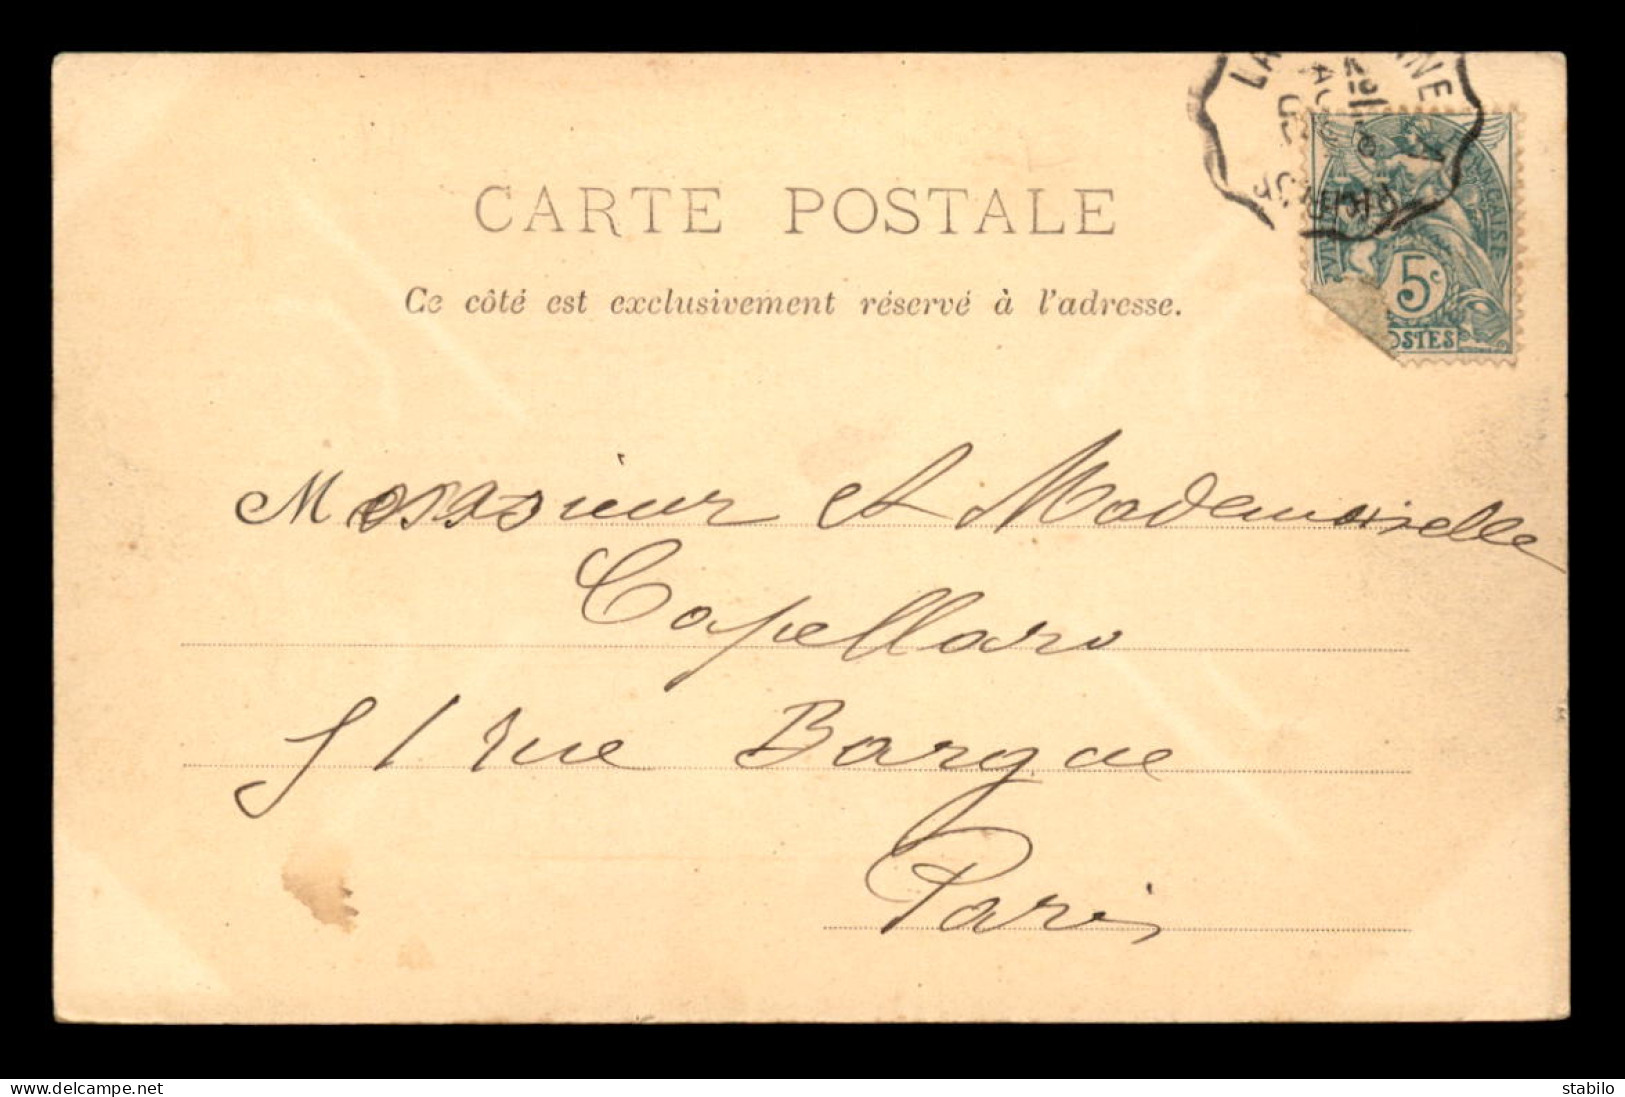 CARTE POSTALE
Ce côté est exclusivement réservé à l'adresse.
5c
OSTES
Monsieur et Mademoiselle
Capellaro
51 rue Bargue
Paris
www.delcampe.net
stabilo